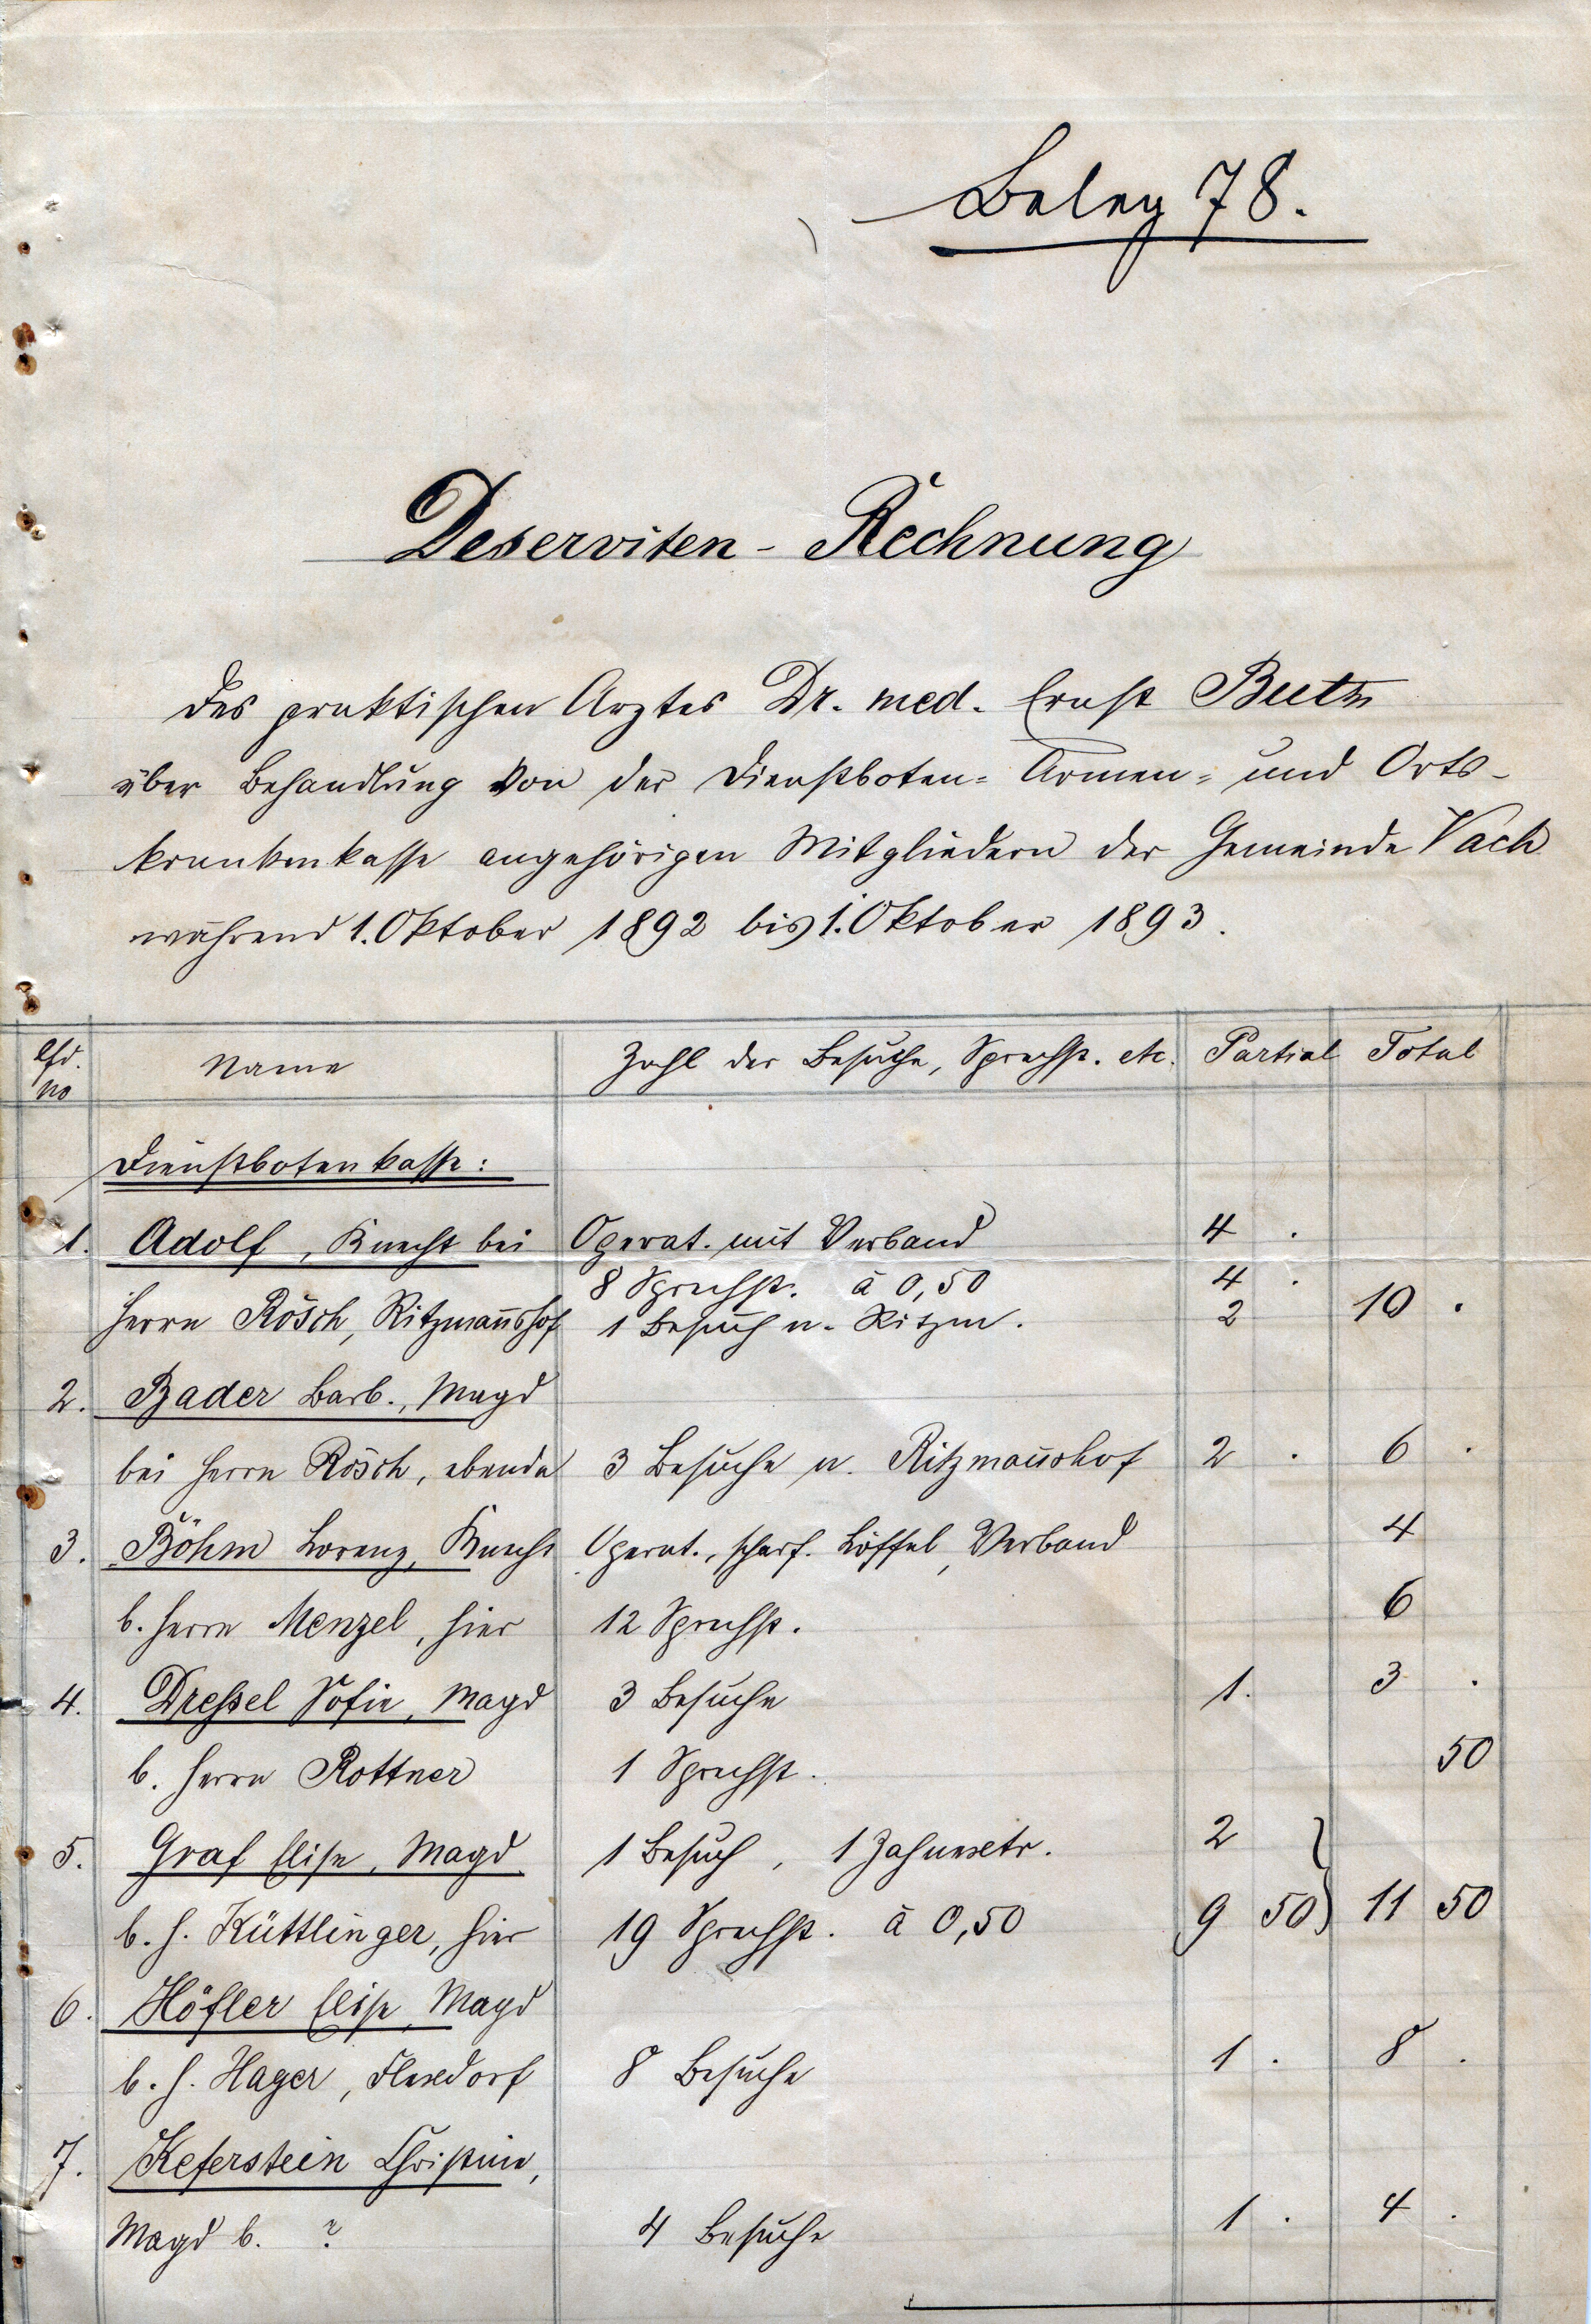 Beleg 78.
Deserviten - Rechnung
des praktischen Arztes Dr. med. Ernst
über Behandlung von der Dienstboten= Armen= und Orts-
krankenkasse angehörigen Mitgliedern der Gemeinde Vach
während 1. Oktober 1892 bis 1. Oktober 1893.
lfd. No Name Zahl der Besuche, Sprechst. etc. Partial Total
Dienstbotenkasse:
1. Adolf, Knecht bei Operat. mit Verband 4 .
8 Sprechst. à 0,50 4 .
Herrn Rösch, Ritzmannshof 1 Besuch n. Ritzm. 2 10 .
2. Bader Barb., Magd
bei Herrn Rösch, ebenda 3 Besuche n. Ritzmannshof 2 . 6 .
3. Böhm Lorenz, Knecht Operat., scharf. Löffel, Verband 4
b. Herrn Menzel, hier 12 Sprechst. 6
4. Dreßel Sofie, Magd 3 Besuche 1. 3 .
b. Herrn Rottner 1 Sprechst. 50
5. Graf Elise, Magd 1 Besuch, 1 Zahnextr. 2
b. H. Küttlinger, hier 19 Sprechst. à 0,50 9 50 } 11 50
6. Höfler Elise, Magd
b. H. Hager, Flexdorf 8 Besuche 1 . 8 .
7. Keferstein Christine,
Magd b. ? 4 Besuche 1 . 4 .